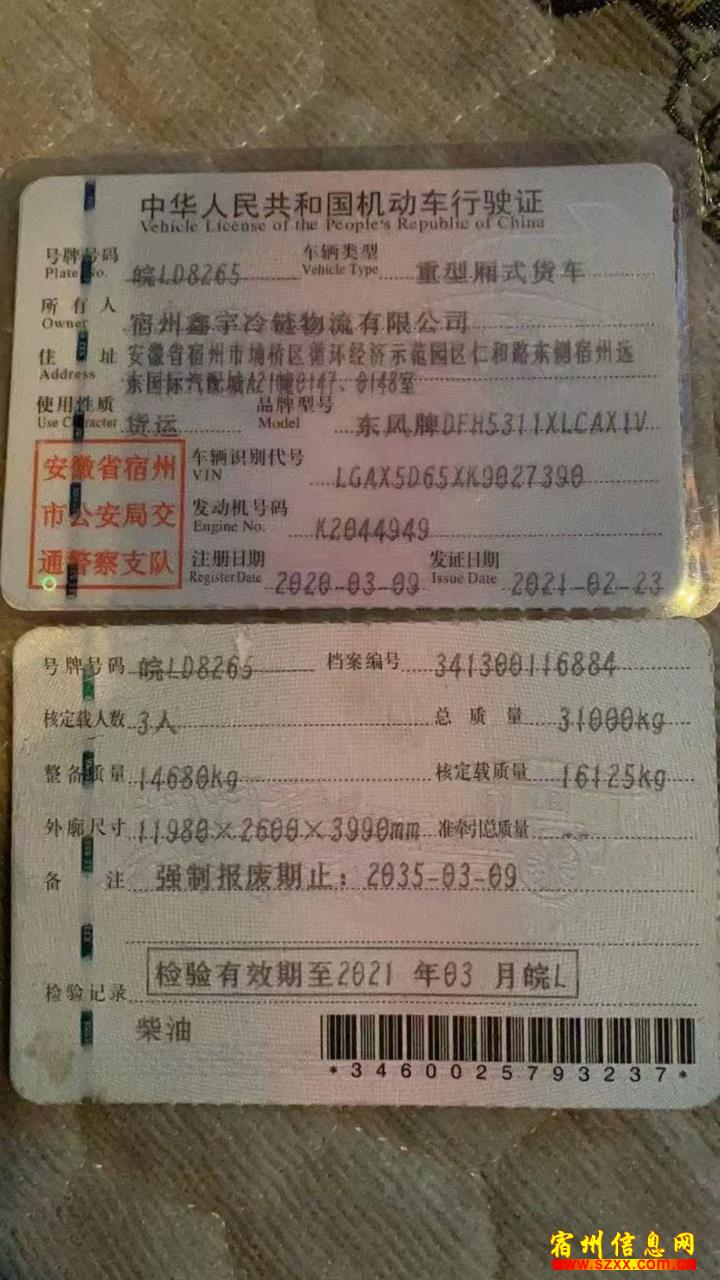 中华人民共和国机动车行驶证
Vehicle License of the People's Republic of China
号牌号码 皖LD8265 车辆类型 重型厢式货车
Plate No. Vehicle Type
所有人 宿州鑫宇冷链物流有限公司
Owner
住址 安徽省宿州市埇桥区循环经济示范园区仁和路东侧宿州远
Address 东国际汽配城A21幢0147、0148室
使用性质 货运 品牌型号 东风牌DFH5311XLCAX1V
Use Character Model
安徽省宿州
市公安局交
通警察支队
车辆识别代号 LGAX5D65XK9027390
VIN
发动机号码 K2044949
Engine No.
注册日期 2020-03-09 发证日期 2021-02-23
Register Date Issue Date
号牌号码 皖LD8265 档案编号 341300116884
核定载人数 3人 总质量 31000kg
整备质量 14680kg 核定载质量 16125kg
外廓尺寸 11980×2600×3990mm 准牵引总质量 --
备注 强制报废期止：2035-03-09
检验记录 检验有效期至2021 年03 月皖L
柴油
*3460025793237*
宿州信息网
www.szxx.com.cn